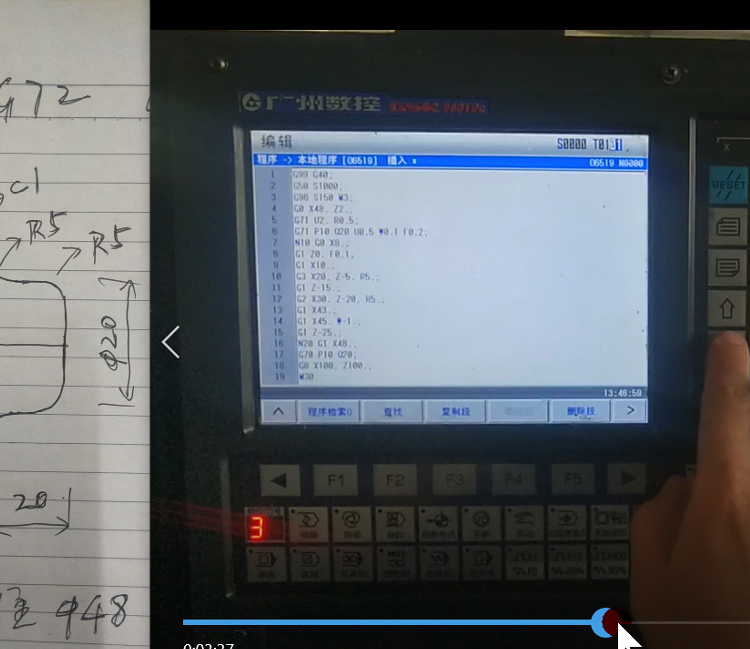 G72
R5
R5
φ20
20
φ48
广州数控
编辑
S0000 T0131
程序 -> 本地程序 [O6519] 插入
O6519 N0000
1 G99 G40;
2 G50 S1000;
3 G96 S150 M3;
4 G0 X48. Z2.;
5 G71 U2. R0.5;
6 G71 P10 Q20 U0.5 W0.1 F0.2;
7 N10 G0 X8.;
8 G1 Z0. F0.1;
9 G1 X10.;
10 G3 X20. Z-5. R5.;
11 G1 Z-15.;
12 G2 X30. Z-20. R5.;
13 G1 X43.;
14 G1 X45. W-1.;
15 G1 Z-25.;
16 N20 G1 X48.;
17 G70 P10 Q20;
18 G0 X100. Z100.;
19 M30
13:46:59
程序检索
查找
复制段
删除段
RESET
F1
F2
F3
F4
F5
3
0:03:37